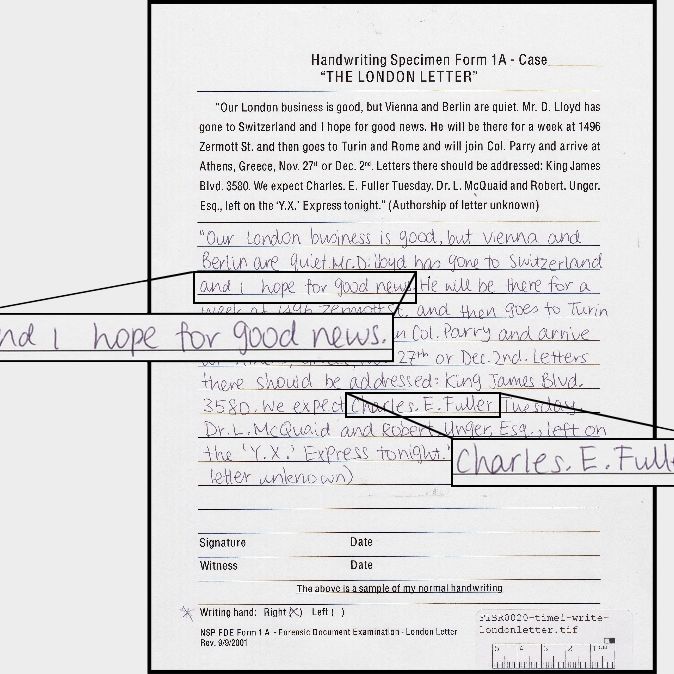 Handwriting Specimen Form 1A - Case
"THE LONDON LETTER"
"Our London business is good, but Vienna and Berlin are quiet. Mr. D. Lloyd has
gone to Switzerland and I hope for good news. He will be there for a week at 1496
Zermott St. and then goes to Turin and Rome and will join Col. Parry and arrive at
Athens, Greece, Nov. 27th or Dec. 2nd. Letters there should be addressed: King James
Blvd. 3580. We expect Charles. E. Fuller Tuesday. Dr. L. McQuaid and Robert. Unger.
Esq., left on the 'Y.X.' Express tonight." (Authorship of letter unknown)
"Our London business is good, but Vienna and
Berlin are quiet. Mr. D. lloyd has gone to Switzerland
and i hope for good news. He will be there for a
week at 1496 Zermott St. and then goes to Turin
and i hope for good news.
in Col. Parry and arrive
27th or Dec. 2nd. Letters
there should be addressed: King James Blvd.
3580. We expect Charles. E. Fuller Tuesday.
Dr. L. McQuaid and Robert Unger, Esq., left on
the 'Y.X.' Express tonight."
Charles. E. Full
letter unknown)
Signature Date
Witness Date
The above is a sample of my normal handwriting
Writing hand: Right (X) Left ( )
NSP FDE Form 1A - Forensic Document Examination - London Letter
Rev. 9/9/2001
-time1-write-
londonletter.tif